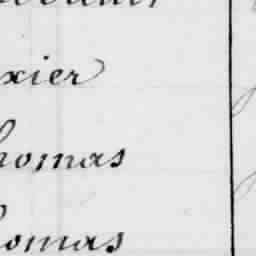 xier
homas
homas